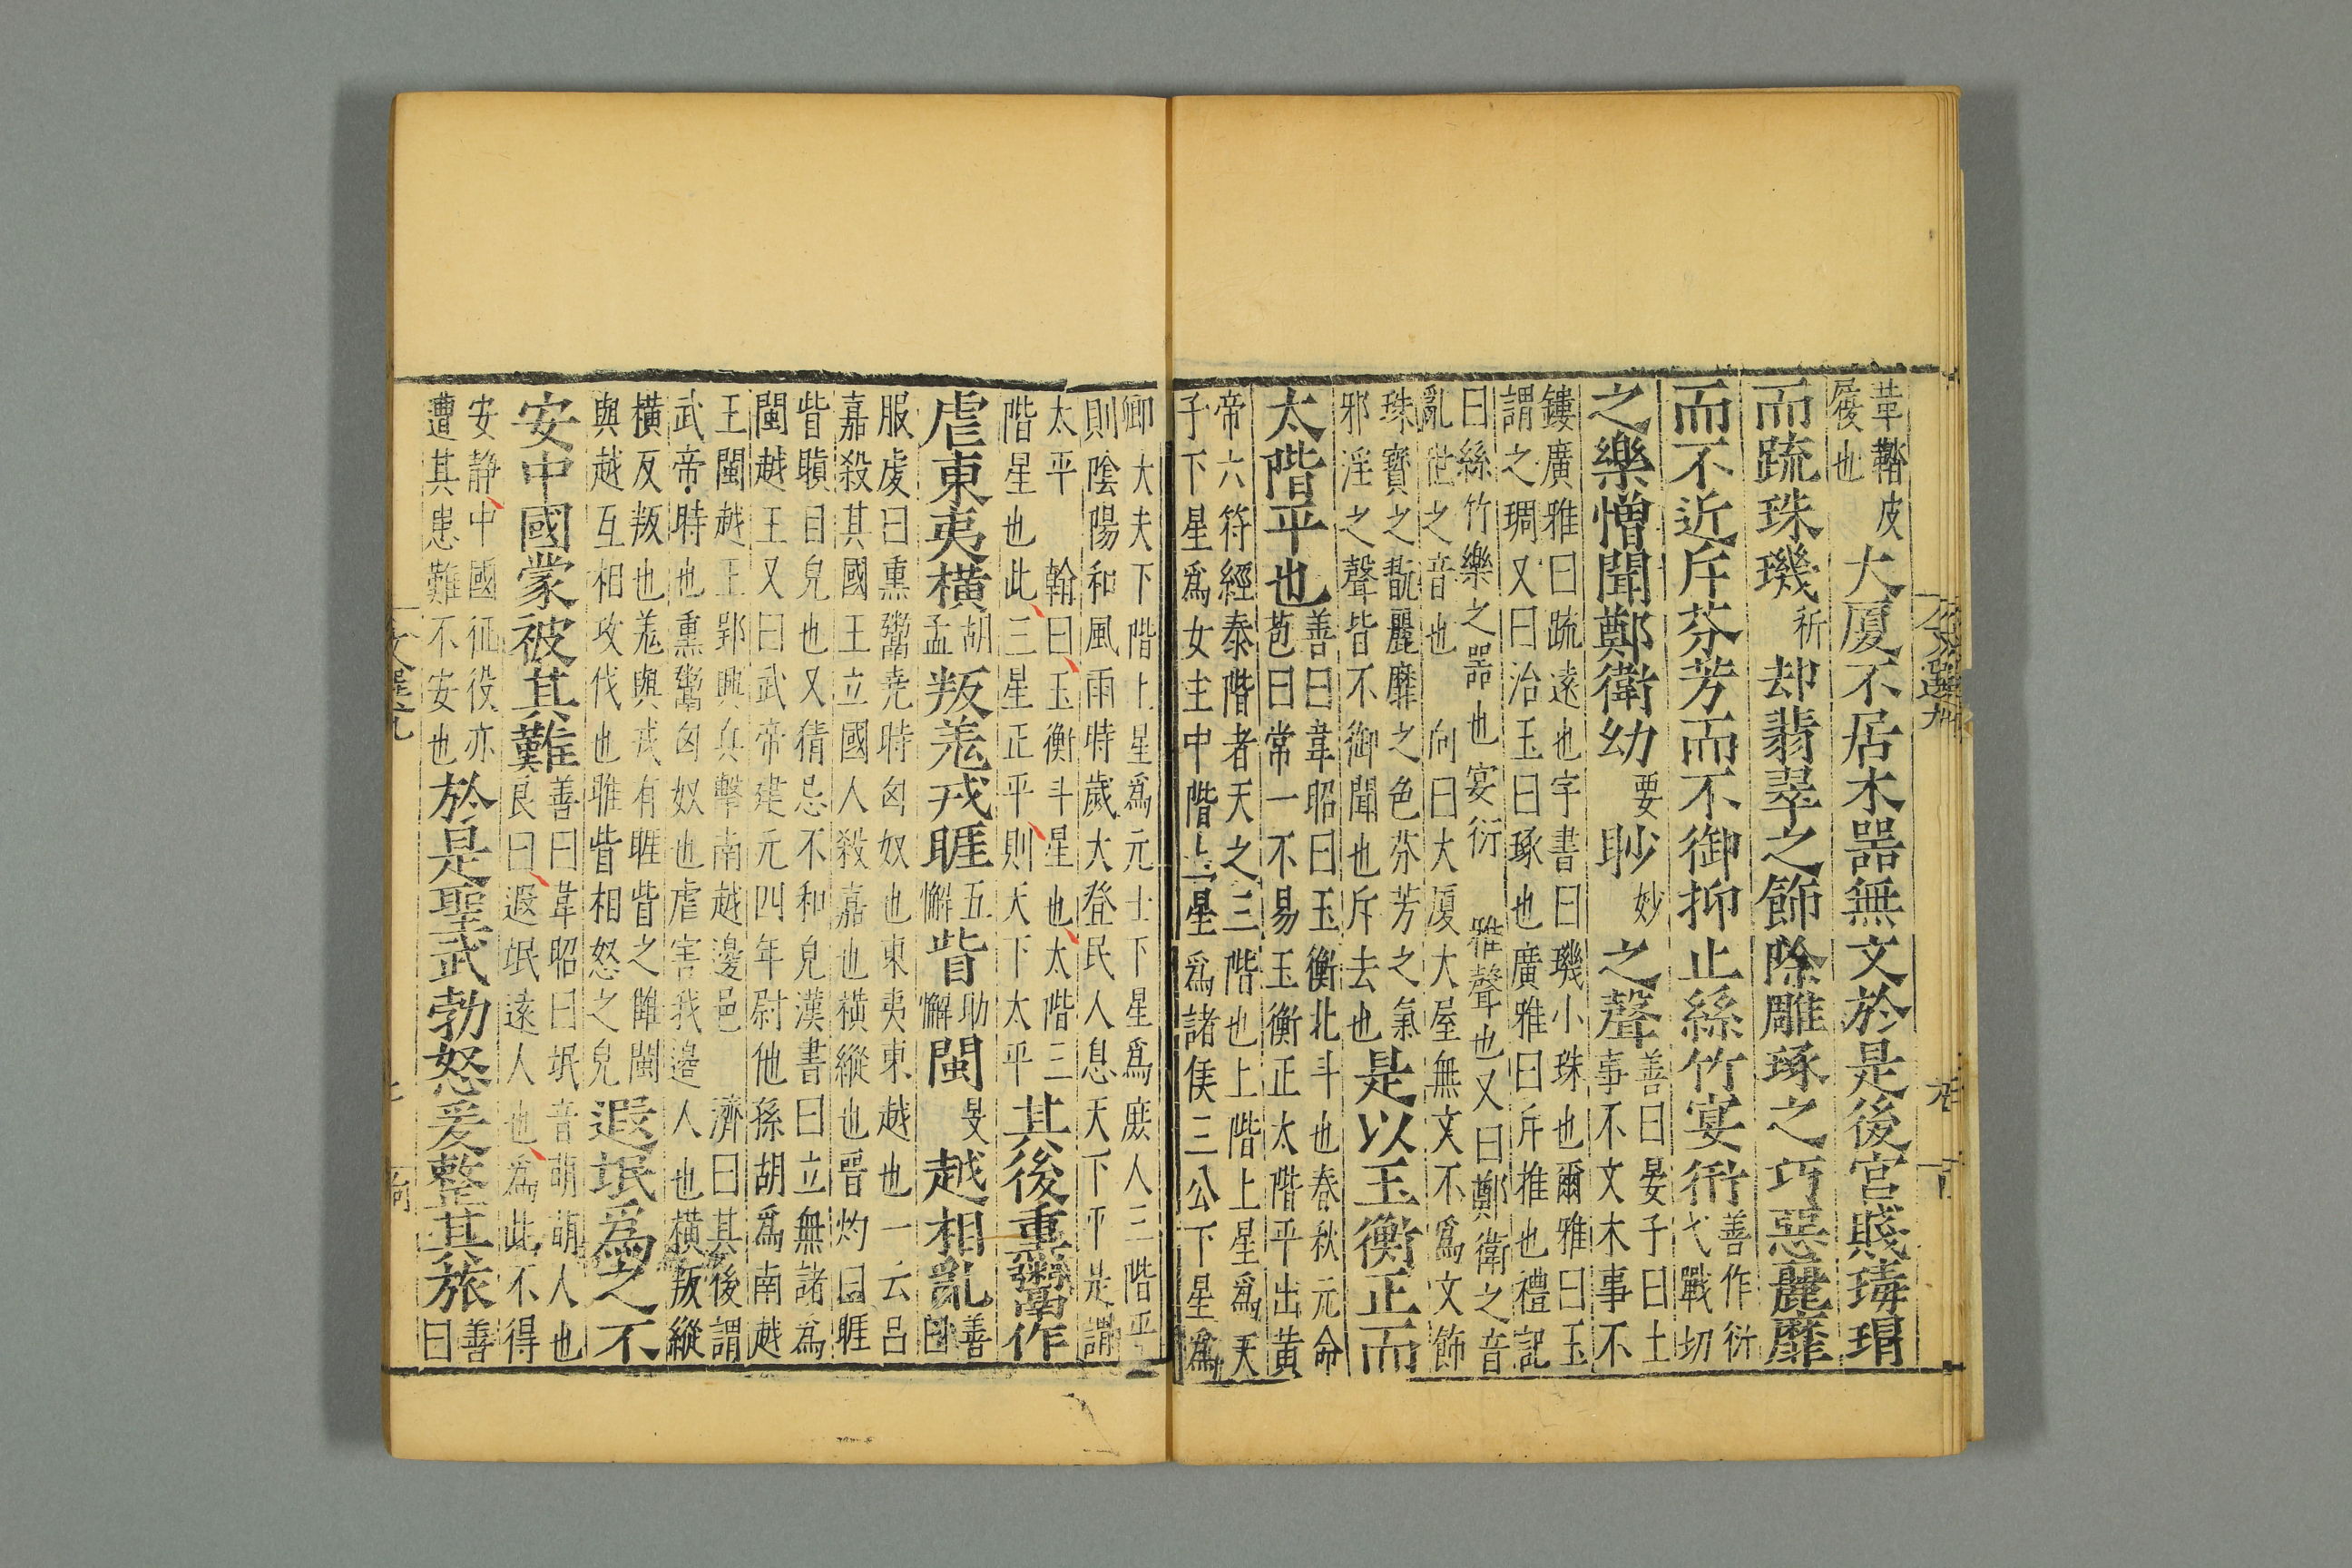 革鞜皮
履也
大厦不居木器無文於是後宮賤瑇瑁
而䟽珠璣
祈
却翡翠之飾除雕琢之巧惡麗靡
而不近斥芬芳而不御抑止絲竹宴衎
善作衍
弋戰切
之樂憎聞鄭衛幼
要
眇
妙
之聲
善曰晏子曰土
事不文木事不
鏤廣雅曰䟽遠也字書曰璣小珠也爾雅曰玉
謂之琱又曰治玉曰琢也廣雅曰斥推也禮記
曰絲竹樂之器也宴衍雅聲也又曰鄭衛之音
亂世之音也向曰大厦大屋無文不爲文飾
珠寳之翫麗靡之色芬芳之氣
邪淫之聲皆不御聞也斥去也
是以玉衡正而
太階平也
善曰韋昭曰玉衡北斗也春秋元命
苞曰常一不易玉衡正太階平出黄
帝六符經泰階者天之三階也上階上星爲天
子下星爲女主中階上星爲諸侯三公下星爲
卿大夫下階上星爲元士下星爲庶人三階平
則陰陽和風雨時歲大登民人息天下平是謂
太平翰曰玉衡斗星也太階三
階星也此三星正平則天下太平
其後熏鬻作
虐東夷橫
胡
孟
叛羗戎睚
五
懈
眥
助
懈
閩
旻
越相亂
善
曰
服虔曰熏鬻堯時匈奴也東夷東越也一云吕
嘉殺其國王立國人殺嘉也橫縱也晋灼曰睚
眥瞋目皃也又猜忌不和皃漢書曰立無諸爲
閩越王又曰武帝建元四年尉他孫胡爲南越
王閩越王郢興兵擊南越邊邑濟曰其後謂
武帝時也熏鬻匈奴也虐害我邊人也橫叛縱
橫反叛也羗與戎有睚眥之雠閩
與越互相攻伐也睚眥相怒之皃
遐氓爲之不
安中國蒙被其難
善曰韋昭曰氓音萌萌人也
良曰遐氓遠人也爲此不得
安静中國征役亦
遭其患難不安也
於是聖武勃怒爰整其旅
善
曰